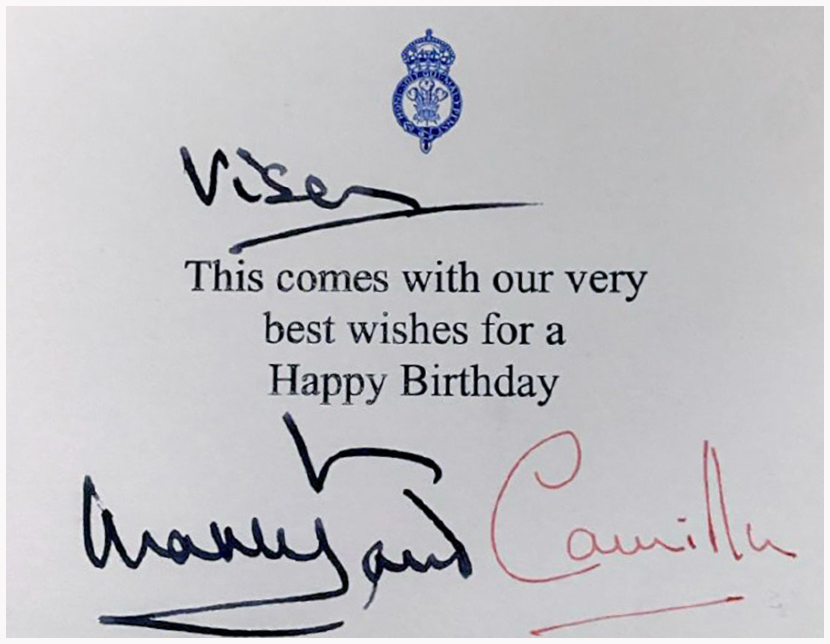 HONI SOIT QUI MAL Y PENSE
This comes with our very
best wishes for a
Happy Birthday
Charles and Camilla